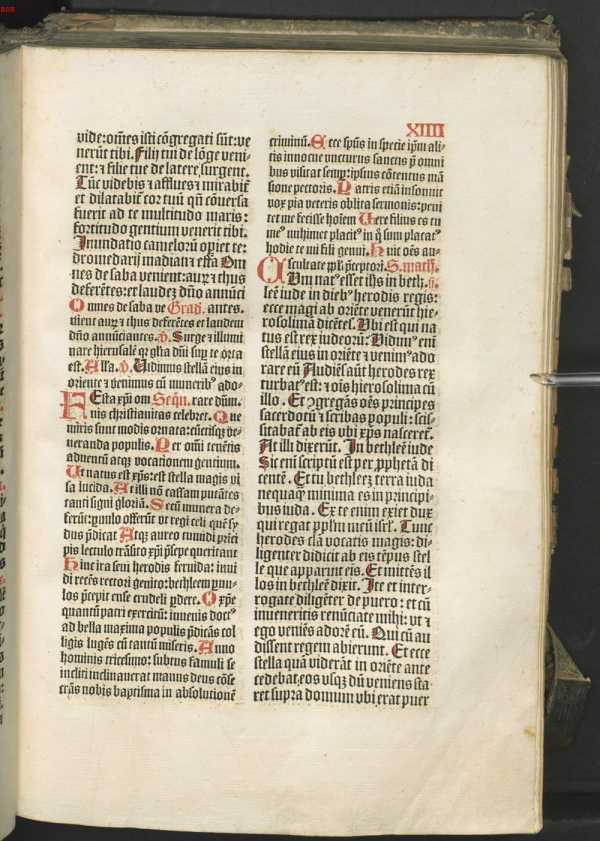 XIIII
vide: om̃es isti cõgregati sũt: ve
nerũt tibi. Filij tui de lõge veni
ent: ⁊ filie tue de latere surgent.
Tũc videbis ⁊ afflues ⁊ mirabit̃
et dilatabit̃ cor tuũ qñ cõuersa
fuerit ad te multitudo maris:
fortitudo gentium venerit tibi.
Inundatio camelorũ opiet te:
dromedarij madian ⁊ effa Om
nes de saba venient: auꝝ ⁊ thus
deferẽtes: et laudez dño annũci
Omnes de saba ve Grad̃. antes.
nient auꝝ ⁊ thus deferẽtes et laudem
dño annũciantes. v̾. Surge ⁊ illumi
nare hierusalẽ qꝛ glĩa dñi suꝑ te orta
est. Alla. v̾. Vidimus stellã eius in
oriente ⁊ venimus cũ munerib⁹ ado⸗
FEsta xp̃i om Seqũ. rare dũm.
nis christianitas celebret. Que
miris sunt modis ornata: cũctisqꝫ ve⸗
neranda populis. Per om̃i tenẽtis
aduentũ atqꝫ vocationem gentium.
Ut natus est xp̃s: est stella magis vi
sa lucida. At illi nõ cassam putãtes
tanti signi gloriã. Secũ munera de⸗
ferũt: ꝑuulo offerũt vt regi celi quẽ sy⸗
dus p̃dicat Atqꝫ aureo tumidi prĩci
pis lectulo trãsito xp̃i p̃sepe queritant
Hinc ira seui herodis feruida: inui
di recẽs rectori genito: bethleem ꝑuu⸗
los p̃cepit ense crudeli ꝑdere. O xp̃e
quantũ patri exercitũ: iuuenis doct⁹
ad bella maxima populis p̃dicãs col
ligis lugẽs cũ tantũ miseris. Anno
hominis tricesimo: subtus famuli se
incliti inclinauerat manus deus cõse
crãs nobis baptisma in absolutionẽ
criminũ. Ecce sp̃us in specie ip̃m ali⸗
tis innocue vncturus sanctus p̃ omni
bus visitat semꝑ: ipsius cõtentus mã
sione pectoris. Patris etiã insonuit
vox pia veteris oblita sermonis: peni
tet me fecisse hoĩem Uere filius es tu
me⁹ mihimet placit⁹ in q̃ sum placat⁹
hodie te mi fili genui. Huic oẽs au⸗
scultate pp̃li p̃ceptori. S. math.
CUm nat⁹ esset ihs in beth⸗ ij.
leẽ iude in dieb⁹ herodis regis:
ecce magi ab oriẽte venerũt hie⸗
rosolima dicẽtes. Ubi est qui na
tus est rex iudeorũ: Vidim⁹ eni
stellã eius in oriẽte ⁊ venim⁹ ado
rare eũ Audiẽs aũt herodes rex
turbat⁹ est: ⁊ oĩs hierosolima cũ
illo. Et ꝯgregãs oẽs principes
sacerdotũ ⁊ scribas ꝓpuli: scis⸗
sitabat̃ ab eis vbi xp̃s nasceret̃.
At illi dixerũt. In bethleẽ iude
Sic eni scriptũ est per ꝓphetã di
centẽ. Et tu bethleez terra iuda
nequaq̃ minima es in principi⸗
bus iuda. Ex te enim exiet dux
qui regat pp̃lm meũ isrl̃. Tunc
herodes clã vocatis magis: di⸗
ligenter didicit ab eis tẽpus stel
le que apparuit eis. Et mittẽs il
los in bethleẽ dixit. Ite et inter⸗
rogate diligẽter de puero: et cũ
inueneritis renũciate mihi: vt ⁊
ego veniẽs adorẽ eũ. Qui cũ au
dissent regem abierunt. Et ecce
stella quã viderãt in oriẽte ante
cedebat eos vsqꝫ dũ veniens sta
ret supra domum vbi erat puer